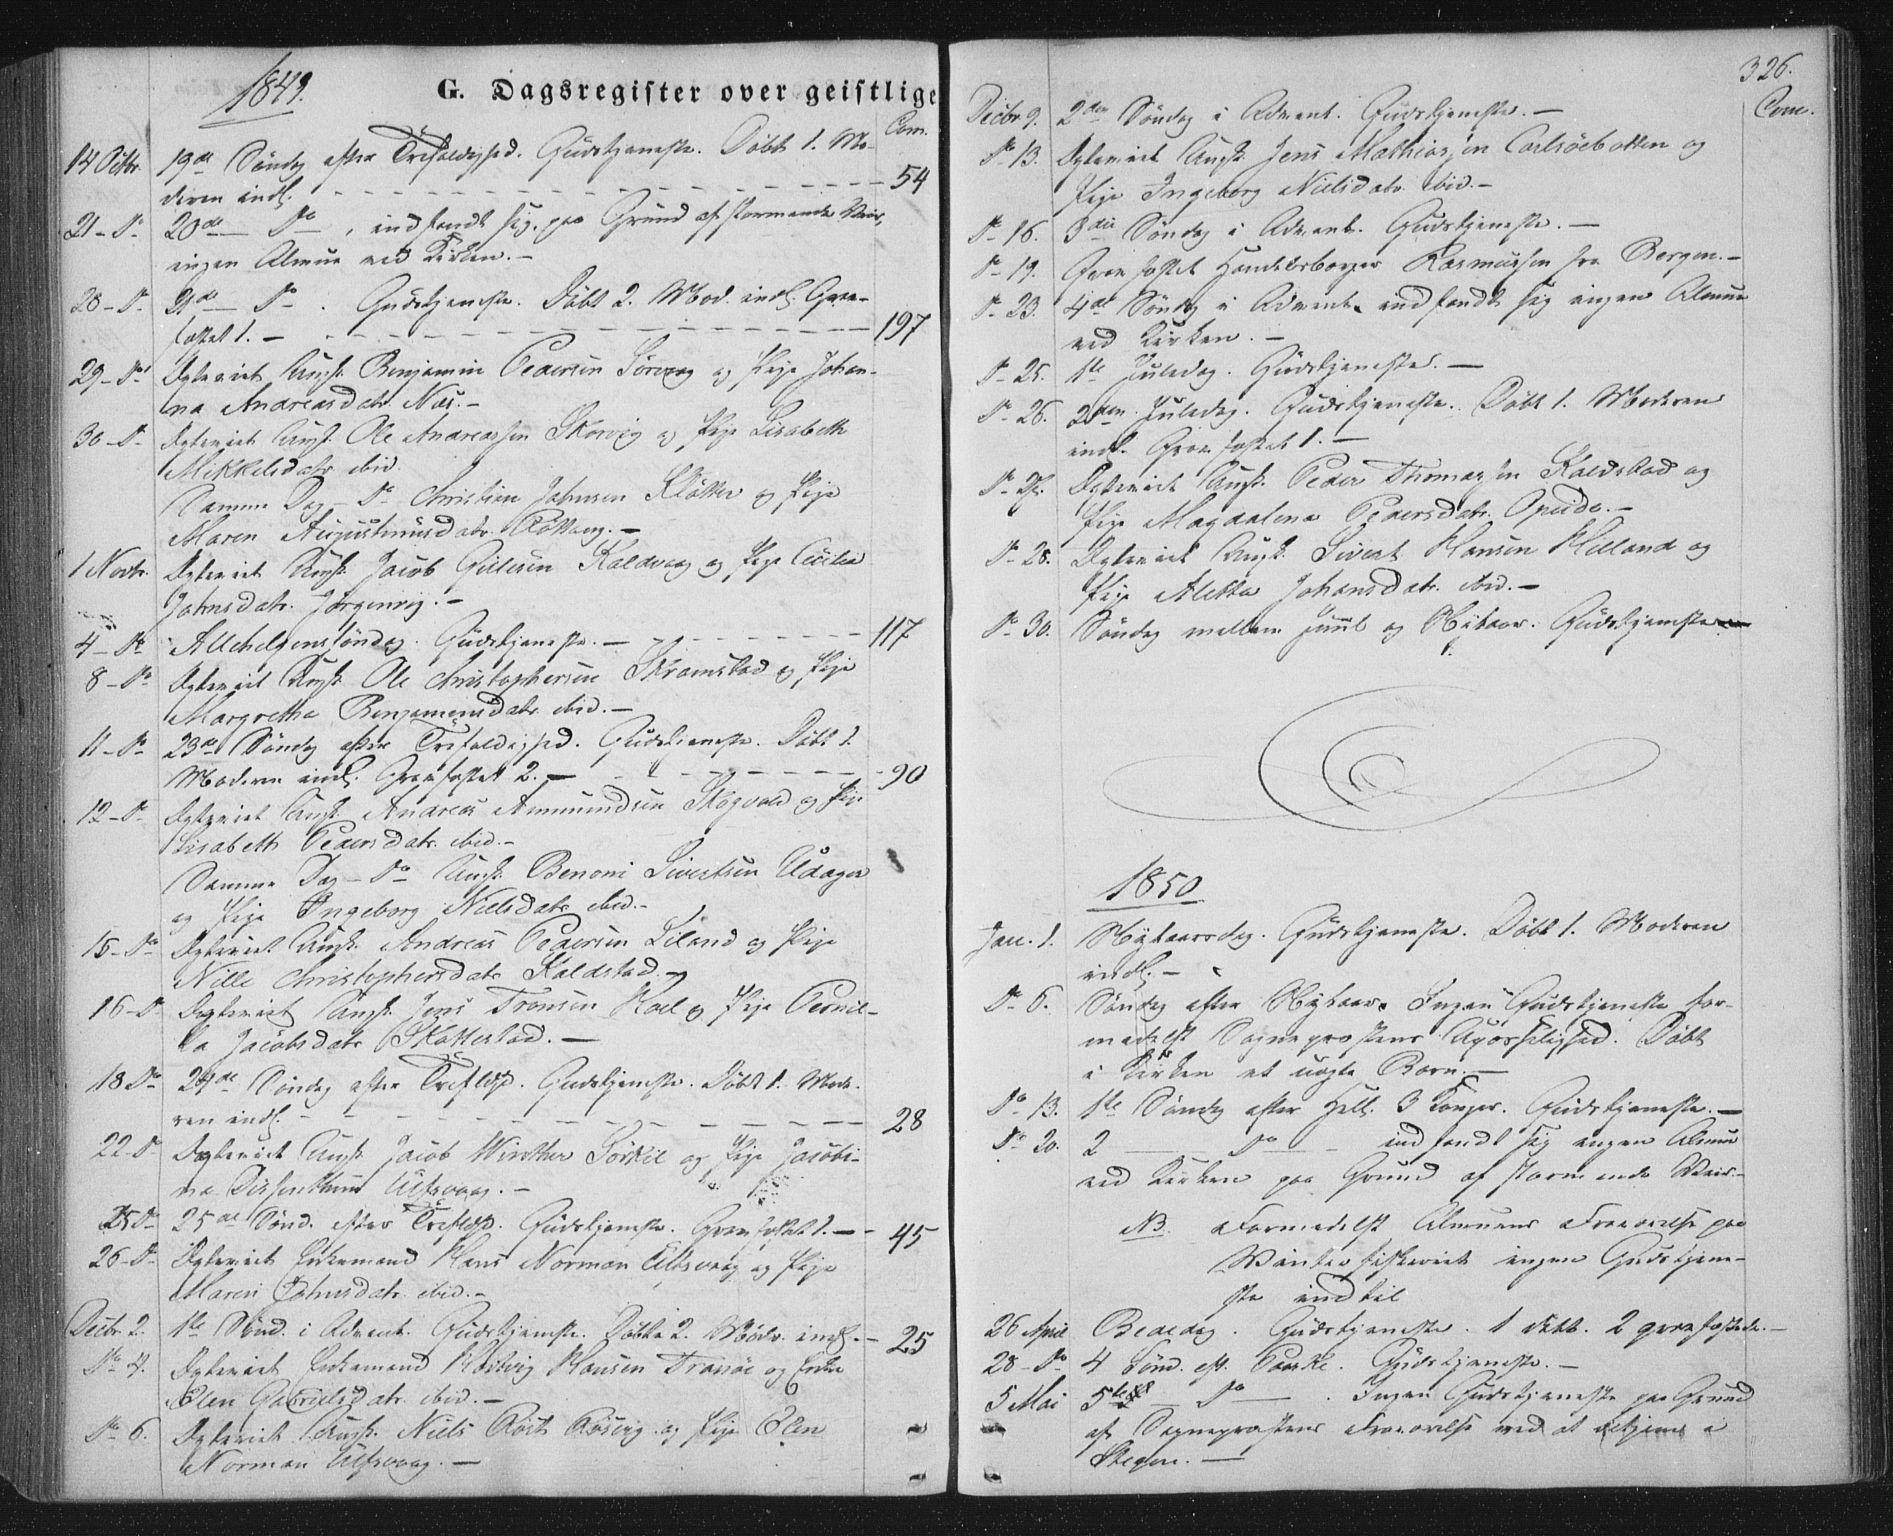 1849.
G. Dagsregister over geistlige
Com.
14 Octbr. 19de Søndag efter Trefoldighed. Gudstjeneste. Døbt 1. Mo-
deren indl. 54
21 - Do 20de - Do - , indfandt sig, paa Grund af stormende Veir,
ingen Almue ved Kirken. -
28 - Do 21de - Do . Gudstjeneste. Døbt 2. Mød. indl. Grav-
fæstet 1. - 197
29 - Do Egteviet Ungk. Benjamin Pedersen Sørvaag og Pige Johan-
na Andreasdatr. Næs. -
30 - Do Egteviet Ungk. Ole Andreassen Skorvig og Pige Lisabeth
Mikkelsdatr. ibid.
Samme Dag - Do Christian Johnsen Kløtter og Pige
Maren Augustinusdatr. -
1 Novbr. Egteviet Ungk. Jacob Kaldvaag og Pige Cecilia
Johnsdatr. Jørgenvig. -
4 - Do Allehelgenssøndag. Gudstjeneste. - 117
8 - Do Egteviet Ungk. Ole Christophersen Skramstad og Pige
Margretha Benjaminsdatr. ibid. -
11 - Do 23de Søndag efter Trefoldighed. Gudstjeneste. Døbt 1.
Moderen indl. Gravfæstet 2. - 90
12 - Do Egteviet Ungk. Andreas Ammundsen Skogvold og Pige
Lisabeth Pedersdatr. ibid. -
Samme Dag - Do Ungk. Benoni Sivertsen Udager
og Pige Ingeborg Nielsdatr. ibid. -
15 - Do Egteviet Ungk. Andreas Pedersen Leland og Pige
Nille Christophersdatr. Kaldstad. -
16 - Do Egteviet Ungk. Jens Tronsen Hoel og Pige Pernil-
la Jacobsdatr. Skottestad. -
18 Do 24de Søndag efter Trefldhd. Gudstjeneste. Døbt 1. Mode-
ren indl. 28
22 - Do Egteviet Ungk. Jacob Winther Sørkil og Pige Jacobi-
na Ulfsvaag. -
25 Do 25de Sønd. efter Trefldhd. Gudstjeneste. Gravfæstet 1. - 45
26 - Do Egteviet Enkemand Hans Norman Ulfsvaag og Pige
Maren Johnsdatr. ibid. -
Decbr. 2. 1ste Sønd. i Advent. Gudstjeneste. Døbte 2. Mødr. indl. - 25
Do 4. Egteviet Enkemand Hartvig Hansen Tranøe og Enke
Elen Gabrielsdatr. ibid. -
Do 6. Egteviet Ungk. Niels Røst Røsvig og Pige Elen
Norman Ulfsvaag. -
326.
Com.
Decbr. 9. 2den Søndag i Advent. Gudstjeneste. -
Do 13. Egteviet Ungk. Jens Mathiassen Carlsøebotten og
Pige Ingeborg Nielsdatr. ibid. -
Do 16. 3die Søndag i Advent. Gudstjeneste. -
Do 19. Gravfæstet Handelsborger Rasmussen fra Bergen. -
Do 23. 4de Søndag i Advent, indfandt sig ingen Almue
ved Kirken. -
Do 25. 1ste Juledag. Gudstjeneste. -
Do 26. 2den Juledag. Gudstjeneste. Døbt 1. Moderen
indl. Gravfæstet 1. -
Do 27. Egteviet Ungk. Peder Thomassen Kaldstad og
Pige Magdalena Pedersdatr. -
Do 28. Egteviet Ungk. Sivert Hansen Helland og
Pige Aletta Johansdatr. ibid. -
Do 30. Søndag mellem Juul og Nytaar. Gudstjeneste.
1850
Jan. 1. Nytaarsdag. Gudstjeneste. Døbt 1. Moderen
indl. -
Do 6. Søndag efter Nytaar. Ingen Gudstjeneste for-
medelst Sognepræstens Upasselighed. Døbt
i Kirken et uægte Barn. -
Do 13. 1ste Søndag efter Hell. 3 Konger. Gudstjeneste. -
Do 20. 2 - Do - indfandt sig ingen Almue
ved Kirken paa Grund af stormende Veir. -
NB. Formedelst Almuens Fraværelse paa
Vinterfiskeriet ingen Gudstjene-
ste indtil
26 April Bededag. Gudstjeneste. 1 døbt. 2 gravfæstede. -
28 - Do 4 Sønd. eft. Paaske. Gudstjeneste. -
5 Mai 5te - Do - . Ingen Gudstjeneste paa Grund
af Sognepræstens Fraværelse ved at betjene i
Stegen. -